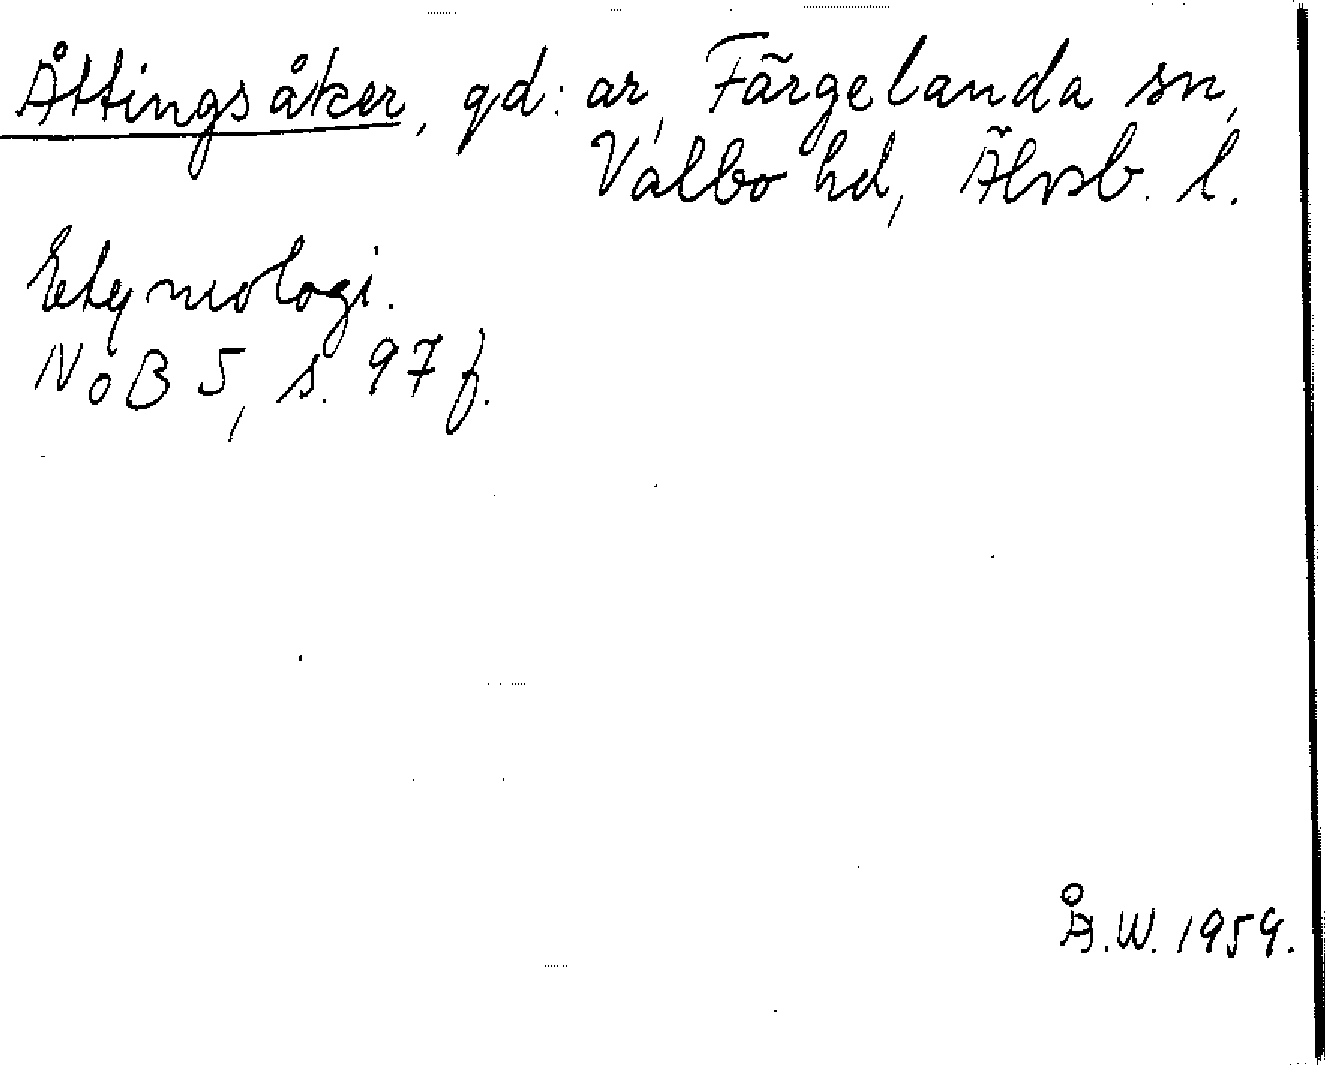 Åttingsåker, gd: ar, Färgelanda sn,
Valbo hd, Älvsb. l.
Etymologi.
NoB 5, s. 97 f.
Å.W. 1959.